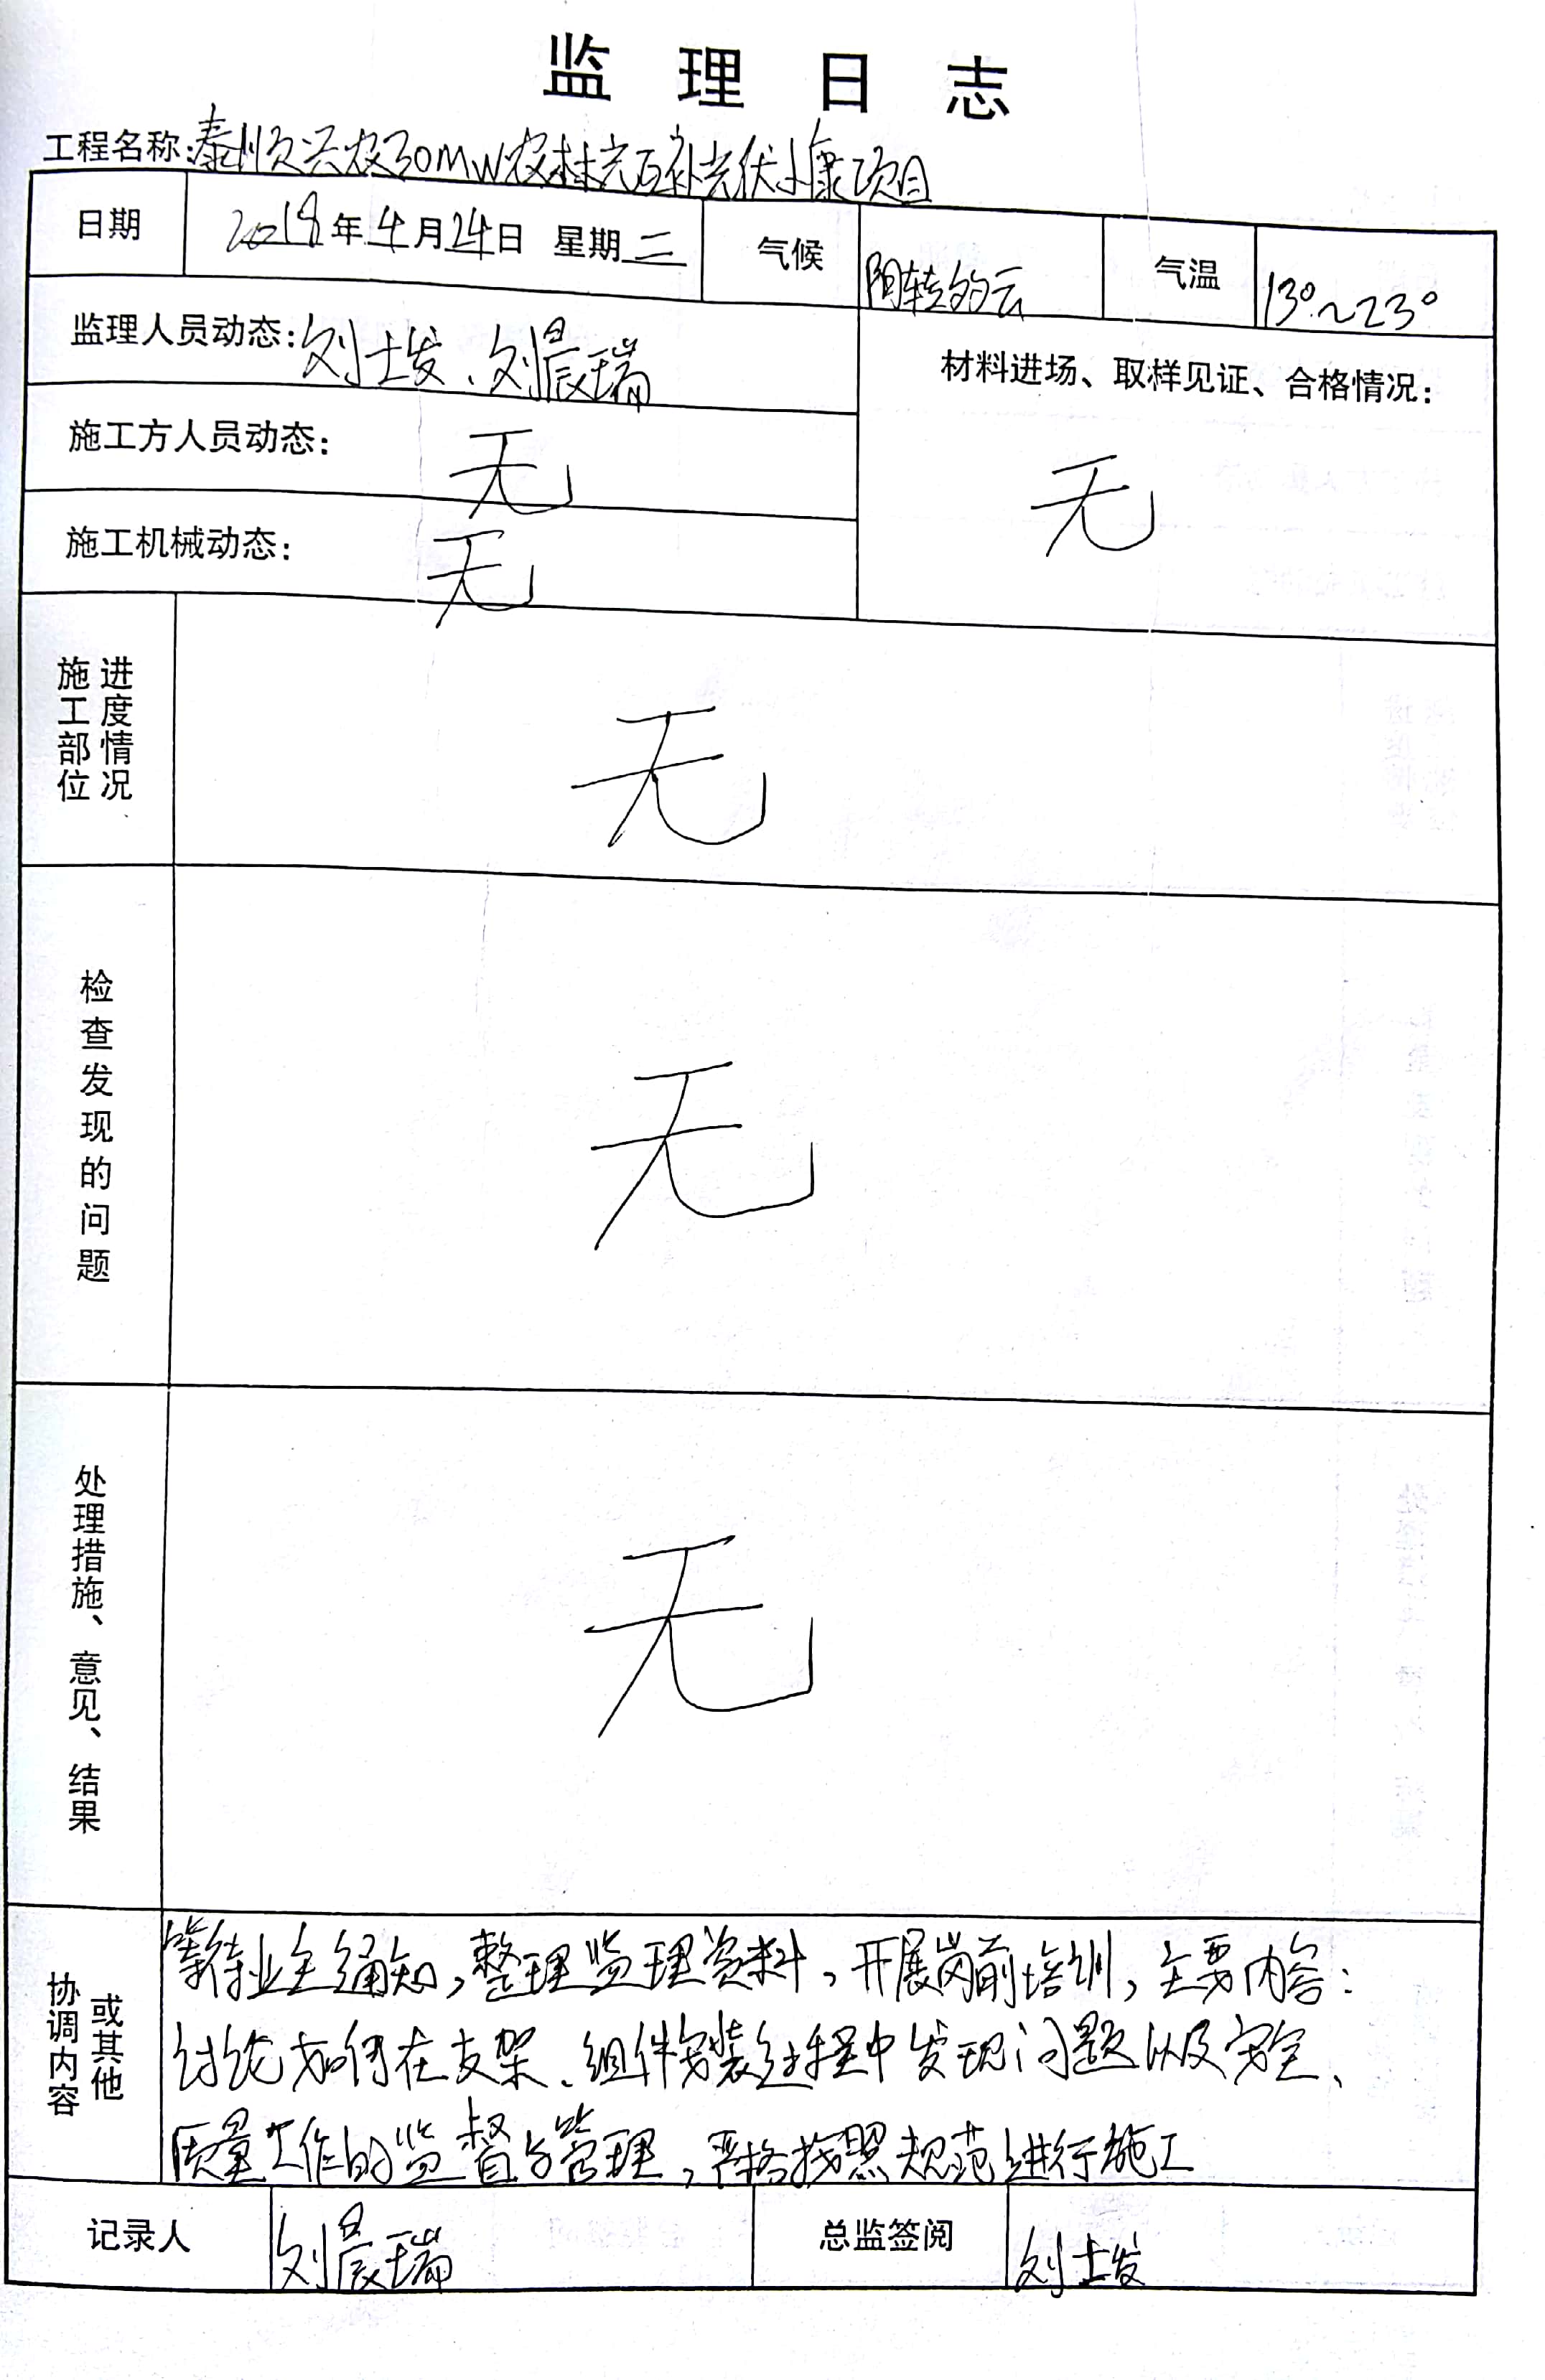 监理日志
工程名称:泰顺兴农30MW农林光互补光伏小康项目
日期 2018年4月24日 星期二 气候 阴转多云 气温 13°~23°
监理人员动态:刘士发、刘晨瑞
材料进场、取样见证、合格情况:
无
施工方人员动态:无
施工机械动态:无
施工部位进度情况 无
检查发现的问题 无
处理措施、意见、结果 无
协调内容或其他
等待业主通知,整理监理资料,开展岗前培训,主要内容:
讨论如何在支架、组件安装过程中发现问题以及安全、
质量工作的监督与管理,严格按照规范进行施工
记录人 刘晨瑞 总监签阅 刘士发